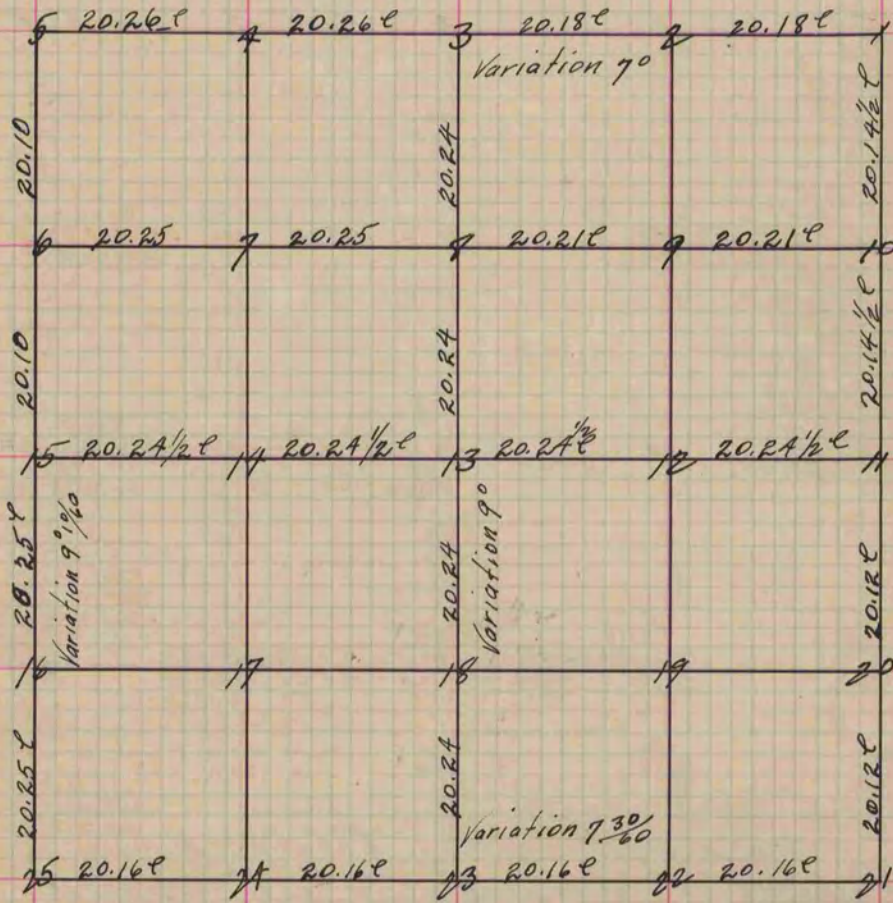 5 20.26 l 4 20.26 l 3 20.18 l 2 20.18 l 1
Variation 7°
20.10 20.24 20.14 1/2 l
6 20.25 7 20.25 8 20.21 l 9 20.21 l 10
20.10 20.24 20.14 1/2 l
15 20.24 1/2 l 14 20.24 1/2 l 13 20.24 1/2 l 12 20.24 1/2 l 11
20.25 l Variation 9° 10/60 20.24 Variation 9° 20.12 l
16 17 18 19 20
20.25 l 20.24 20.12 l
Variation 7 30/60
25 20.16 l 24 20.16 l 23 20.16 l 22 20.16 l 21